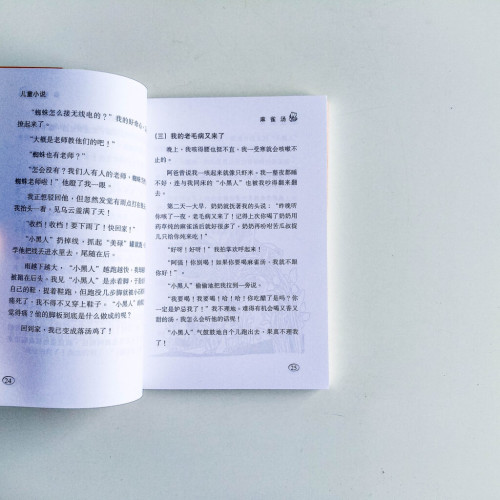 儿童小说
“蜘蛛怎么接无线电的？”我的好奇心
接起来了。
“大概是老师教他们的吧！”
“蜘蛛也有老师？”
“怎会没有？我们人有人的老师，蜘蛛
蜘蛛老师啦！”他瞪了我一眼。
我正想驳回他，但忽然发觉有雨点打在
我抬头一看，见乌云盖满了天！
“收档！收档！要下雨了！快回家！”
“小黑人”扔掉线，抓起“美禄”罐就逃，
学他把线丢进水里去，尾随在后。
雨越下越大，“小黑人”越跑越快，我
被抛在后头。我见“小黑人”是赤着脚，于
自己的鞋，提着鞋跑，但跑没几步脚就被小石
痛死了，我不得不又穿上鞋子。“小黑人”
觉得痛？他的脚板到底是什么做成的呢？
回到家，我已变成落汤鸡了！
24
麻雀汤
（三）我的老毛病又来了
晚上，我咳得腰也挺不直。我一受寒就会咳嗽不
止的。
阿爸曾说我一咳起来就像只虾米。我一整夜都睡
不好，连与我同床的“小黑人”也被我吵得翻来翻
去。
第二天一大早，奶奶就抚著我的头说：“昨晚听
你咳了一夜，老毛病又来了！记得上次你喝了奶奶用
药草炖的麻雀汤后就好很多了，奶奶再吩咐苦瓜叔捉
几只给你炖来吃！”
“好呀！好呀！”我拍掌欢呼起来！
“阿国！你别喝！如果你要喝麻雀汤，我就不跟
你好！”
“小黑人”偷偷地把我拉到一旁说。
“我要喝！我要喝！哈！哈！你吃醋了是吗？你
一定是妒忌我了！”我不理他。难得有机会喝又香又
甜的汤，我怎么会听他的话呢！
“小黑人”气鼓鼓地自个儿跑出去，果真不理我
了！
25